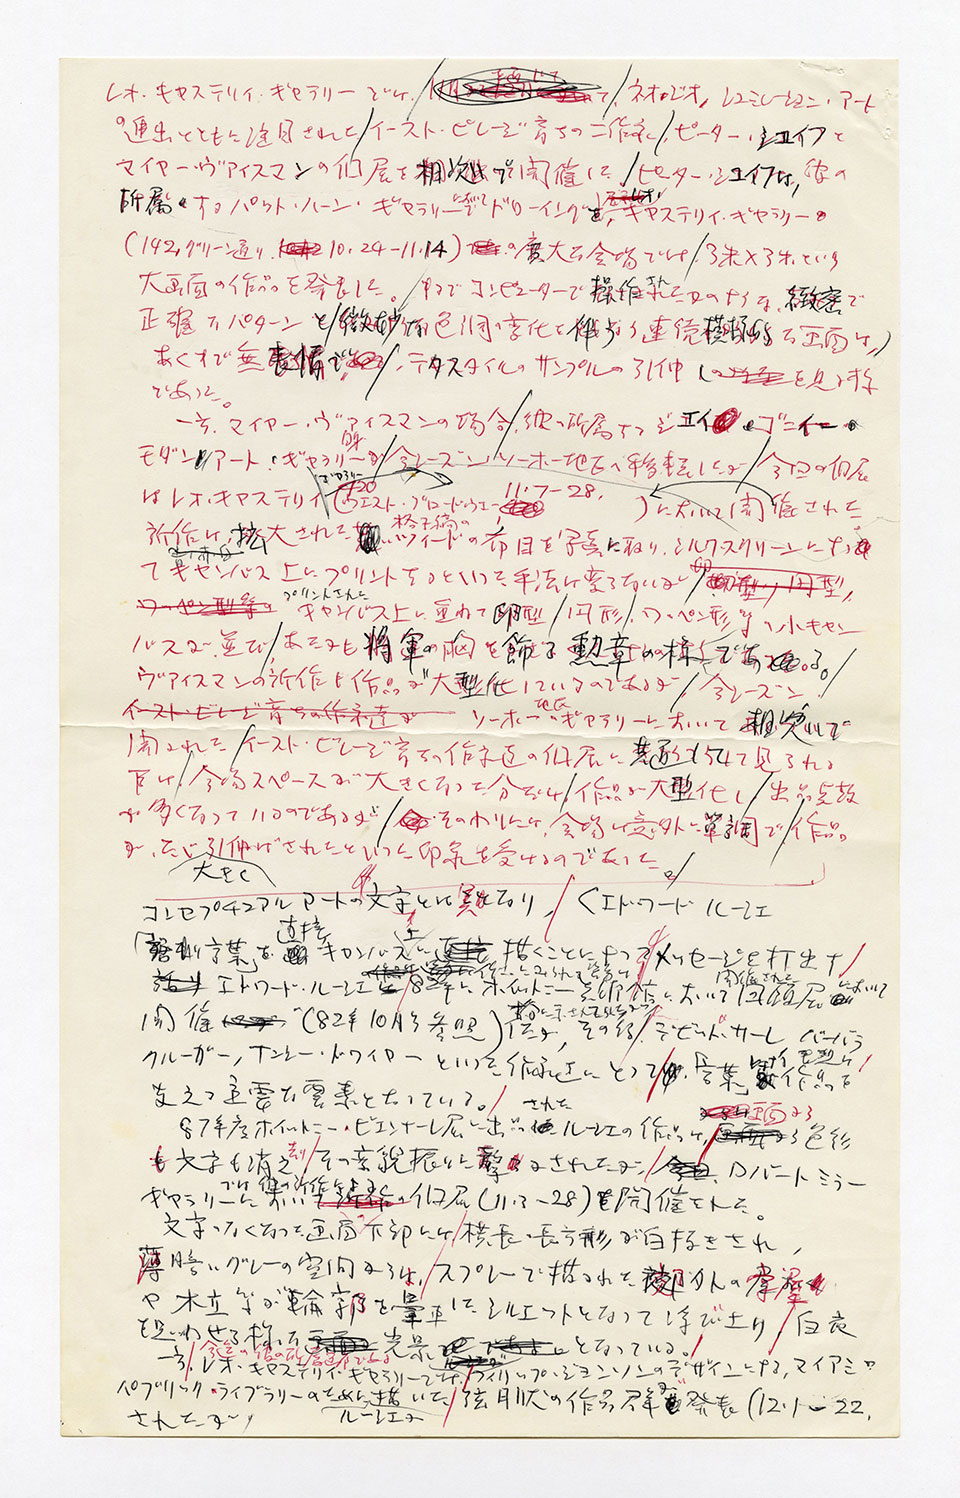 レオ・キャステリィ・ギャラリーでは、ネオ・ジオ、シュミレーション・アート
の進出とともに注目されたイースト・ビレージ育ちの二作家、ピーター・シュイフと
マイヤー・ヴァイスマンの個展を相次いで開催した。ピーター・シュイフは、彼の
所属するパット・ハーン・ギャラリーにてドローイングを、キャステリィ・ギャラリー
(142,グリーン通り、10.24-11.14)の広大な会場では、3米×3米という
大画面の作品を発表した。まるでコンピューターで操作されたかのような、緻密で
正確なパターンと微妙な色調の変化を伴なう連続模様的な画面は、
あくまで無表情で、テクスタイルのサンプルの引伸しを見る様
であった。
一方、マイヤー・ヴァイスマンの場合、彼の所属する
モダン・アート・ギャラリー自身が今シーズン、ソーホー地区へ移転したが、今回の個展
はレオ・キャステリィ ギャラリー(420 ウエスト・ブロードウェー 11.7-28.)において開催された
新作は、拡大された格子縞のツィードの布目を写真に取り、シルクスクリーンによっ
てキャンバス上にプリントするといった手法は変らないが、
プリントされたキャンバス上に重ねて卵型、円形、ワッペン形等の小キャン
バスが並び、あたかも将軍の胸を飾る勲章の様である。
ヴァイスマンの新作は作品が大型化しているのであるが、今シーズン、
ソーホー地区のギャラリーにおいて相次いで
開かれたイースト・ビレージ育ちの作家達の個展に共通して見られる
事は、会場スペースが大きくなった分だけ、作品が大型化し、出品点数
が多くなっているのであるが、そのわりには、会場は意外に単調で、作品
が、ただ大きく引伸ばされたといった印象を受けるのであった。
コンセプチュアルアートの文字とは異なり、(エドワード ルーシェ
「言葉」を直接キャンバス上に描くことによってメッセージを打出す
エドワード・ルーシェは82年にホイットニー美術館において回顧展
開催(82年10月号参照)その後、デビッド・サーレ バーバラ
クルーガー、ナンシー・ドワイヤーといった作家達にとって「言葉」は作品を
支える重要な要素となっている。
87年度ホイットニー・ビエンナーレ展に出品されたルーシェの作品は、画面から色彩
も文字も消え去り、その変貌振りに驚かされたが、ロバートミラー
ギャラリーにおいて個展(11.3-28)を開催された。
文字のなくなった画面の下部には横長の長方形が白抜きされ、
薄暗いグレーの空間からは、スプレーで描かれた
や木立等が輪郭を暈したシルエットとなって浮び上り、白夜
を思わせる様な光景となっている。
一方、レオ・キャステリィ・ギャラリーでは、フィリップ・ジョンソンのデザインによる、マイアミ
パブリック・ライブラリーのためにルーシェが描いた、弦月状の作品が発表(12.1-22.
されたが、